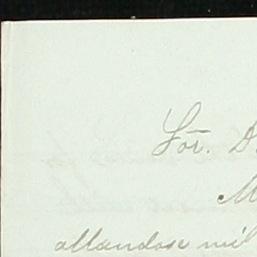 Sor. D.
M
allandose mil